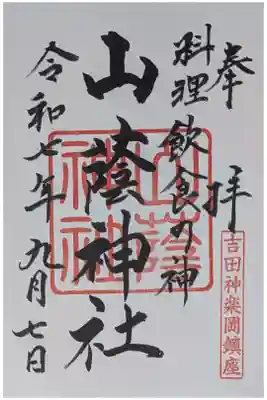 奉拝
料理飲食の神
山蔭神社
令和七年九月七日
山蔭神社
吉田神楽岡鎮座